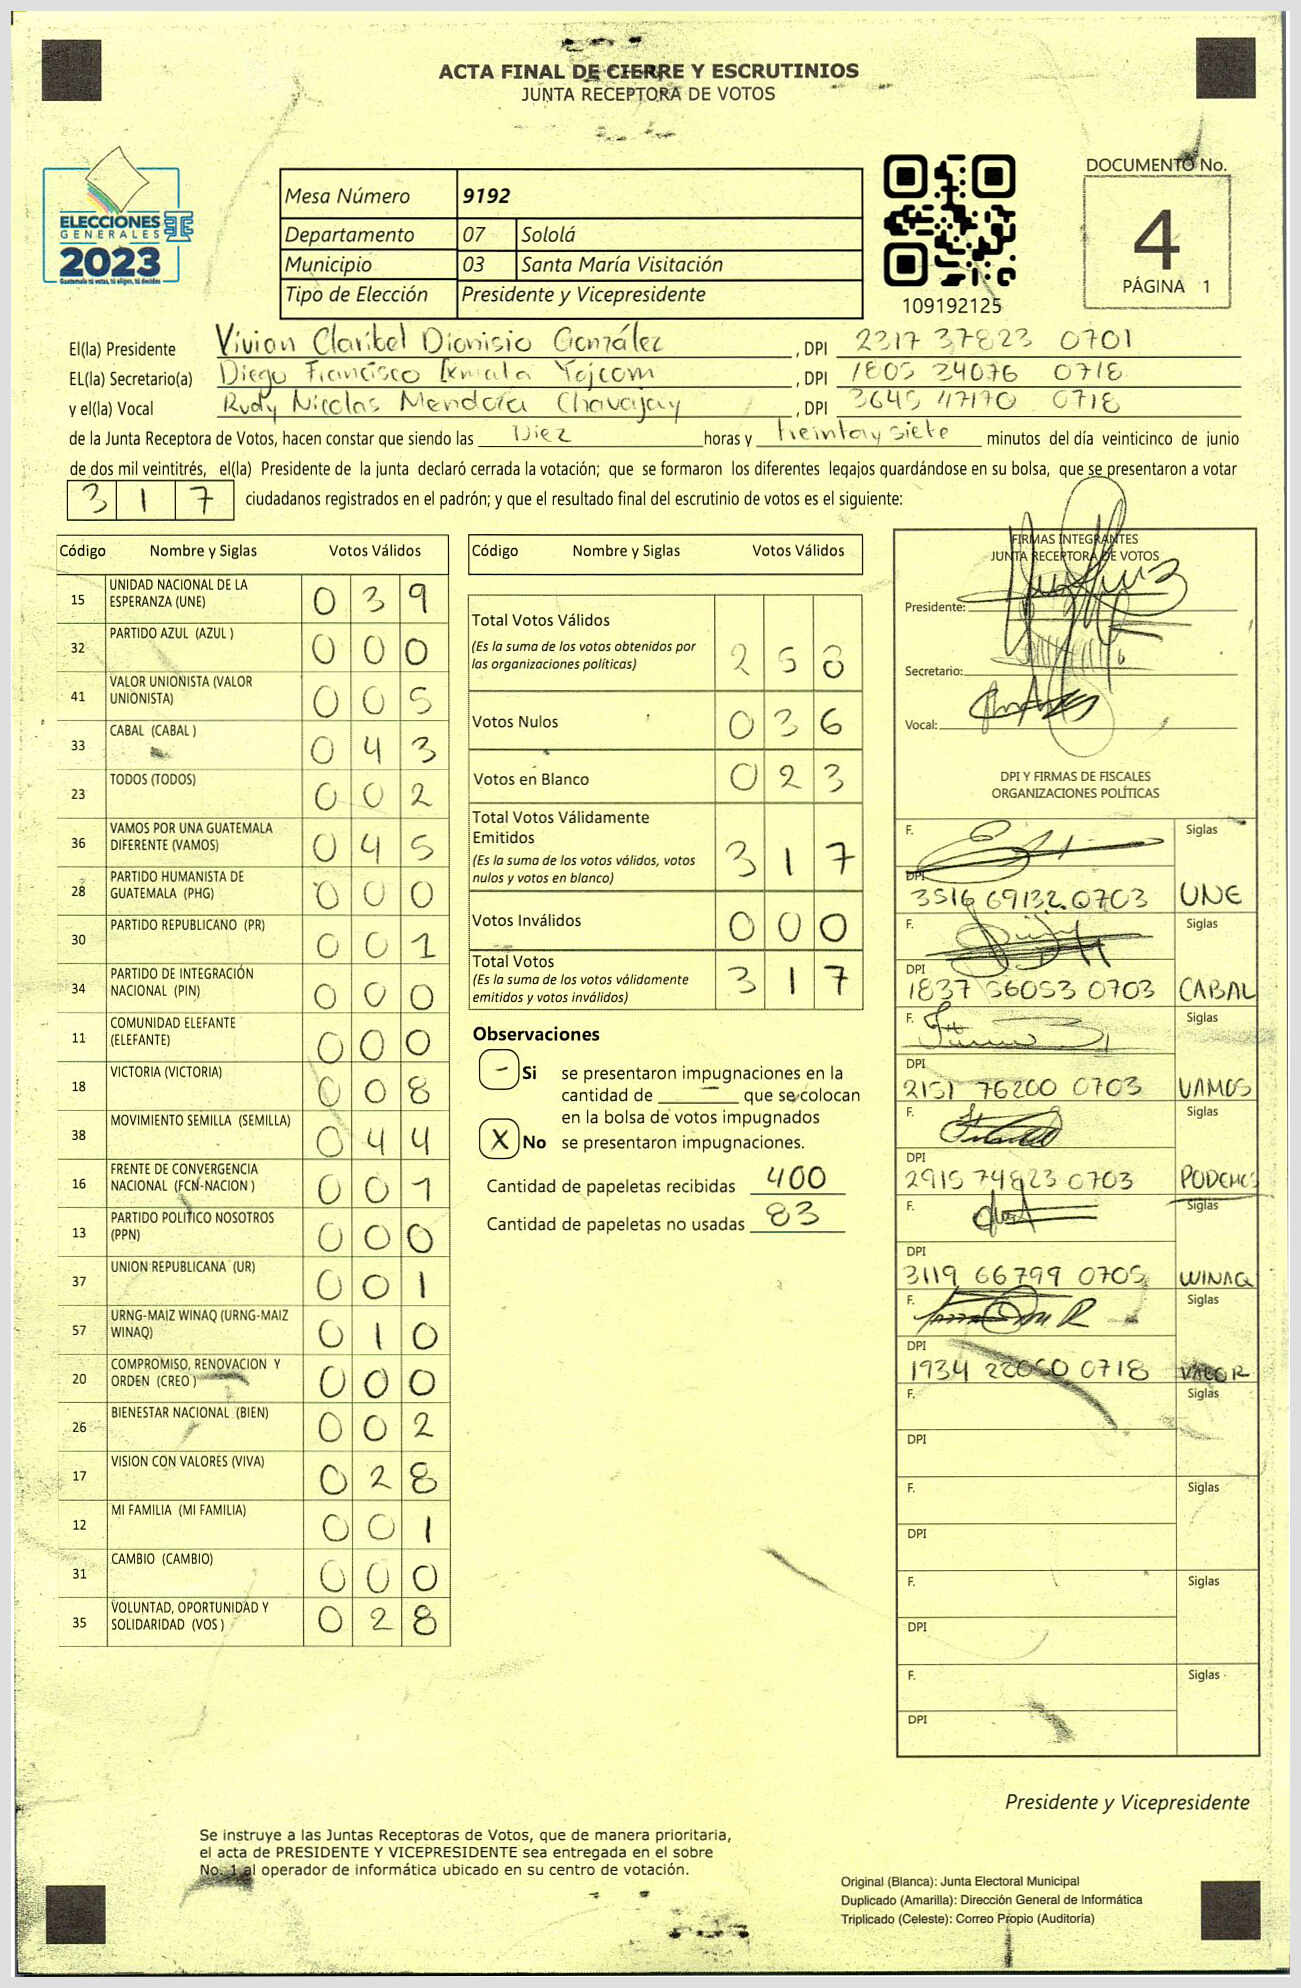 ACTA FINAL DE CIERRE Y ESCRUTINIOS
JUNTA RECEPTORA DE VOTOS
ELECCIONES
GENERALES
2023
Guatemala tú votas, tú eliges, tú decides
Mesa Número 9192
Departamento 07 Sololá
Municipio 03 Santa María Visitación
Tipo de Elección Presidente y Vicepresidente
109192125
DOCUMENTO No.
4
PÁGINA 1
El(la) Presidente Vivian Claribel Dionisio González , DPI 2317 37823 0701
EL(la) Secretario(a) Diego Francisco Ixmatá Yojcom , DPI 1805 24076 0718
y el(la) Vocal Rudy Nicolas Mendoza Chavajay , DPI 3645 47170 0718
de la Junta Receptora de Votos, hacen constar que siendo las Diez horas y treintaysiete minutos del día veinticinco de junio
de dos mil veintitrés, el(la) Presidente de la junta declaró cerrada la votación; que se formaron los diferentes legajos guardándose en su bolsa, que se presentaron a votar
317 ciudadanos registrados en el padrón; y que el resultado final del escrutinio de votos es el siguiente:
Código Nombre y Siglas Votos Válidos
15 UNIDAD NACIONAL DE LA ESPERANZA (UNE) 039
32 PARTIDO AZUL (AZUL ) 000
41 VALOR UNIONISTA (VALOR UNIONISTA) 005
33 CABAL (CABAL ) 043
23 TODOS (TODOS) 002
36 VAMOS POR UNA GUATEMALA DIFERENTE (VAMOS) 045
28 PARTIDO HUMANISTA DE GUATEMALA (PHG) 000
30 PARTIDO REPUBLICANO (PR) 001
34 PARTIDO DE INTEGRACIÓN NACIONAL (PIN) 000
11 COMUNIDAD ELEFANTE (ELEFANTE) 000
18 VICTORIA (VICTORIA) 008
38 MOVIMIENTO SEMILLA (SEMILLA) 044
16 FRENTE DE CONVERGENCIA NACIONAL (FCN-NACION ) 001
13 PARTIDO POLITICO NOSOTROS (PPN) 000
37 UNION REPUBLICANA (UR) 001
57 URNG-MAIZ WINAQ (URNG-MAIZ WINAQ) 010
20 COMPROMISO, RENOVACION Y ORDEN (CREO ) 000
26 BIENESTAR NACIONAL (BIEN) 002
17 VISION CON VALORES (VIVA) 028
12 MI FAMILIA (MI FAMILIA) 001
31 CAMBIO (CAMBIO) 000
35 VOLUNTAD, OPORTUNIDAD Y SOLIDARIDAD (VOS ) 028
Código Nombre y Siglas Votos Válidos
Total Votos Válidos
(Es la suma de los votos obtenidos por
las organizaciones políticas) 258
Votos Nulos 036
Votos en Blanco 023
Total Votos Válidamente
Emitidos
(Es la suma de los votos válidos, votos
nulos y votos en blanco) 317
Votos Inválidos 000
Total Votos
(Es la suma de los votos válidamente
emitidos y votos inválidos) 317
Observaciones
- Si se presentaron impugnaciones en la
cantidad de — que se colocan
en la bolsa de votos impugnados
X No se presentaron impugnaciones.
Cantidad de papeletas recibidas 400
Cantidad de papeletas no usadas 83
FIRMAS INTEGRANTES
JUNTA RECEPTORA DE VOTOS
Presidente:
Secretario:
Vocal:
DPI Y FIRMAS DE FISCALES
ORGANIZACIONES POLÍTICAS
F. Siglas
DPI
3516 69132 0703 UNE
F. Siglas
DPI
1837 56053 0703 CABAL
F. Siglas
DPI
2151 76200 0703 VAMOS
F. Siglas
DPI
2915 74823 0703 PODEMOS
F. Siglas
DPI
3119 66799 0705 WINAQ
F. Siglas
DPI
1934 22050 0718 VALOR
F. Siglas
DPI
F. Siglas
DPI
F. Siglas
DPI
F. Siglas
DPI
Presidente y Vicepresidente
Se instruye a las Juntas Receptoras de Votos, que de manera prioritaria,
el acta de PRESIDENTE Y VICEPRESIDENTE sea entregada en el sobre
No. 1 al operador de informática ubicado en su centro de votación.
Original (Blanca): Junta Electoral Municipal
Duplicado (Amarilla): Dirección General de Informática
Triplicado (Celeste): Correo Propio (Auditoría)